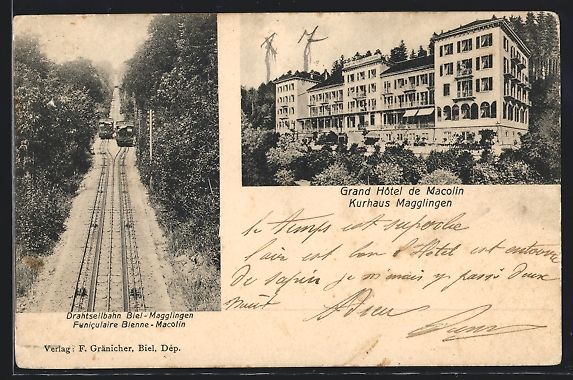 Grand Hôtel de Macolin
Kurhaus Magglingen
le temps est superbe
l'air est bon l'Hôtel est entouré
de sapin je m'ais y passé deux
nuit Adieu
Drahtseilbahn Biel-Magglingen
Funiçulaire Bienne-Macolin
Verlag: F. Gränicher, Biel, Dép.